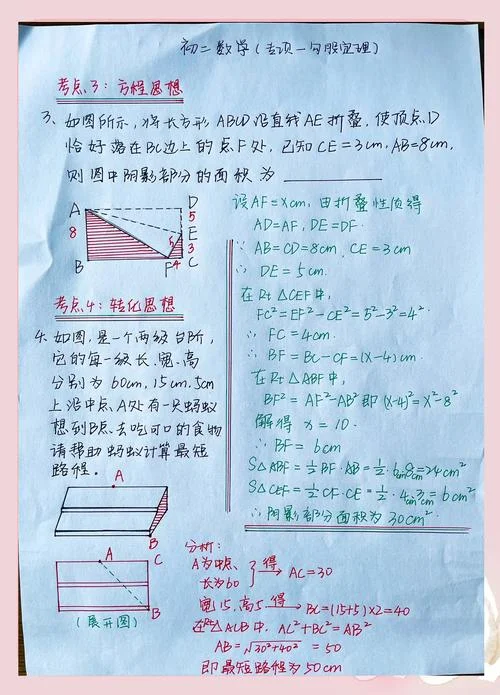 初二数学(专项一勾股定理)
考点3:方程思想
3、如图所示,将长方形ABCD沿直线AE折叠,使顶点D
恰好落在BC边上的点F处,已知CE=3cm,AB=8cm,
则图中阴影部分的面积为
A
D
5
8
E
5
3
B
F
4
C
设AF=xcm,由折叠性质得
AD=AF,DE=DF.
∵ AB=CD=8cm,CE=3cm
∴ DE=5cm.
在Rt△CEF中,
FC²=EF²-CE²=5²-3²=4²
∴ FC=4cm.
∴ BF=BC-CF=(x-4)cm.
在Rt△ABF中,
BF²=AF²-AB² 即(x-4)²=x²-8²
解得 x=10.
∴ BF=6cm
S△ABF=½BF·AB=½·6cm·8cm=24cm²
S△CEF=½CF·CE=½·4cm·3cm=6cm²
∴ 阴影部分面积为30cm²
考点4:转化思想
4、如图,是一个两级台阶,
它的每一级长、宽、高
分别为60cm,15cm,5cm
上沿中点A处有一只蚂蚁
想到B点去吃可口的食物
请帮助蚂蚁计算最短
路程.
A
B
A
C
B
(展开图)
分析:
A为中点、
长为60
得
AC=30
宽15,高5
得
BC=(15+5)×2=40
在Rt△ACB中,AC²+BC²=AB²
AB=√30²+40² =50
即最短路程为50cm